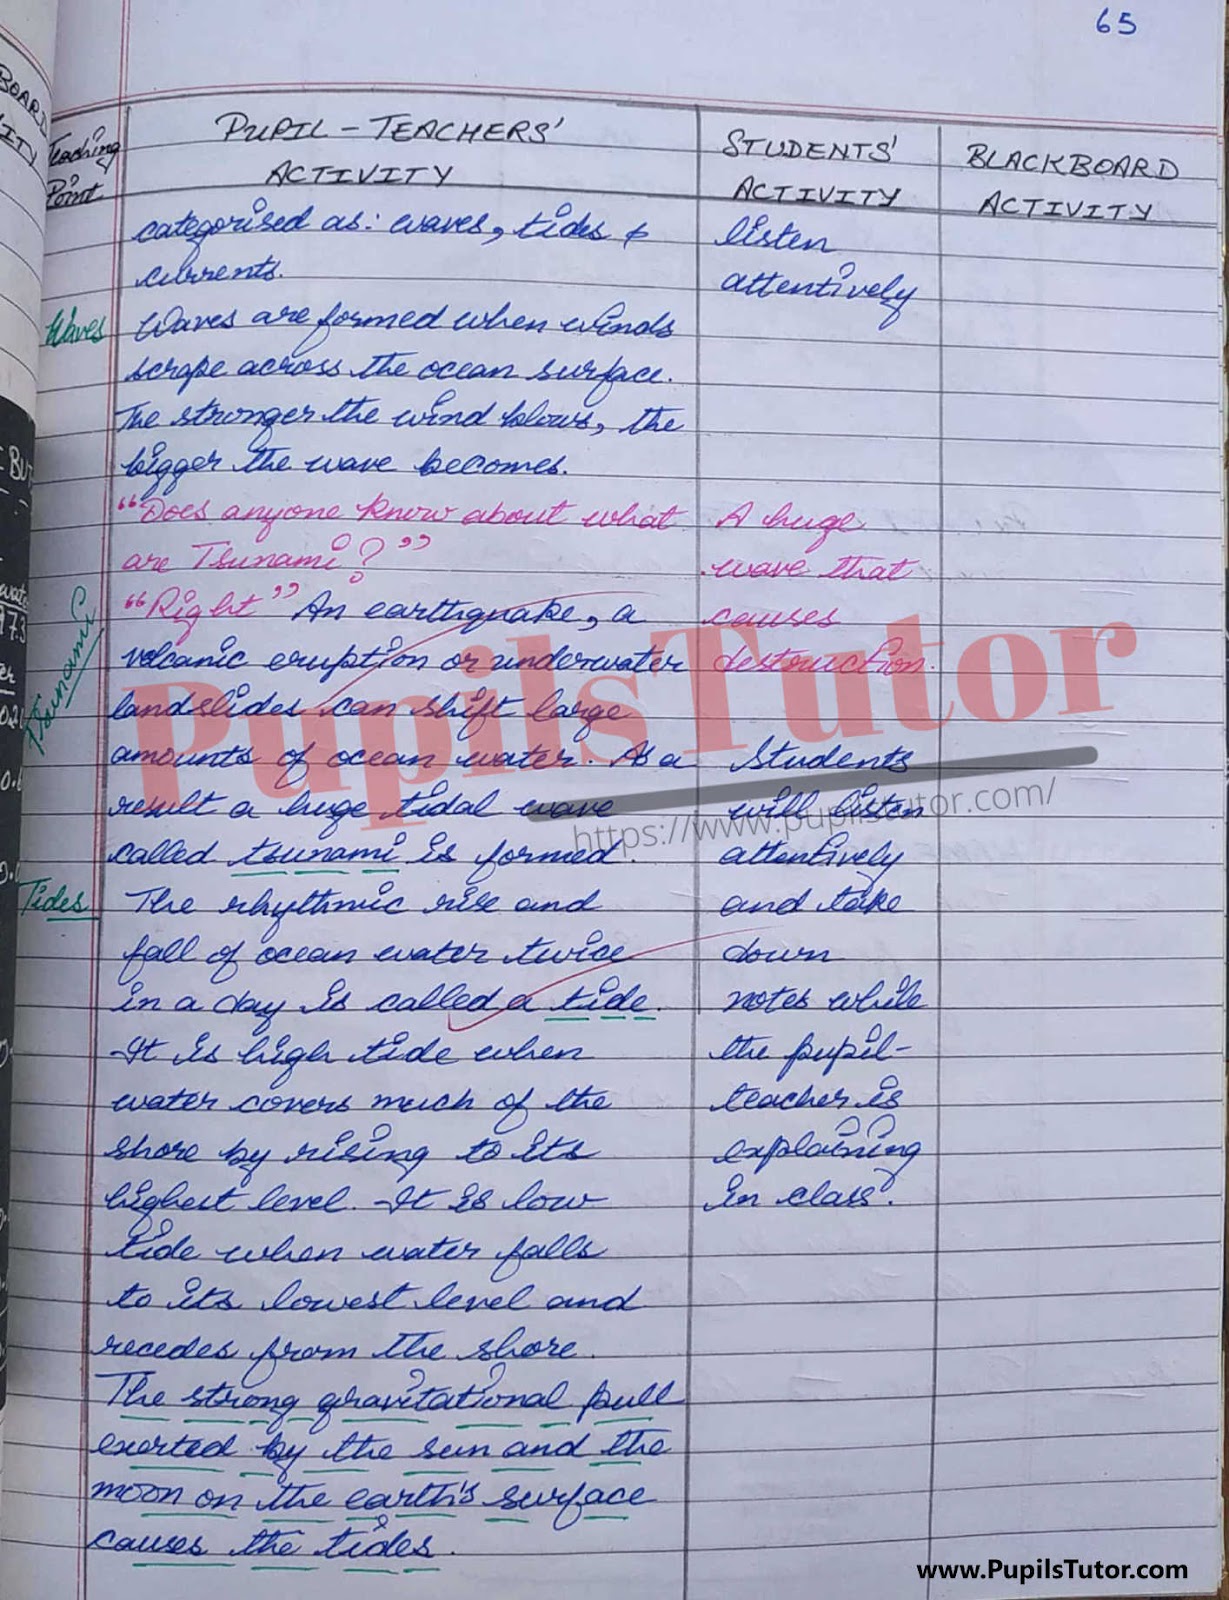 65
BOARD
Teaching
Point
PUPIL - TEACHERS'
ACTIVITY
STUDENTS'
ACTIVITY
BLACKBOARD
ACTIVITY
categorised as: waves, tides &
currents.
listen
attentively
Waves
Waves are formed when winds
scrape across the ocean surface.
The stronger the wind blows, the
bigger the wave becomes.
"Does anyone know about what
are Tsunami?"
A huge
wave that
causes
destruction.
Tsunami
"Right" An earthquake, a
volcanic eruption or underwater
landslides can shift large
amounts of ocean water. As a
result a huge tidal wave
called tsunami is formed.
Students
will listen
attentively
and take
down
notes while
the pupil-
teacher is
explaining
in class.
Tides
The rhythmic rise and
fall of ocean water twice
in a day is called a tide.
It is high tide when
water covers much of the
shore by rising to its
highest level. It is low
tide when water falls
to its lowest level and
recedes from the shore.
The strong gravitational pull
exerted by the sun and the
moon on the earth's surface
causes the tides.
PupilsTutor
https://www.pupilstutor.com/
www.PupilsTutor.com